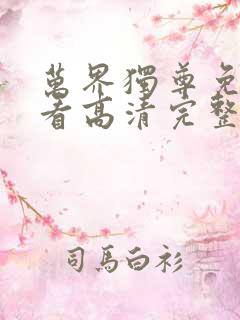 萬界獨尊免
看高清完整
司馬白衫